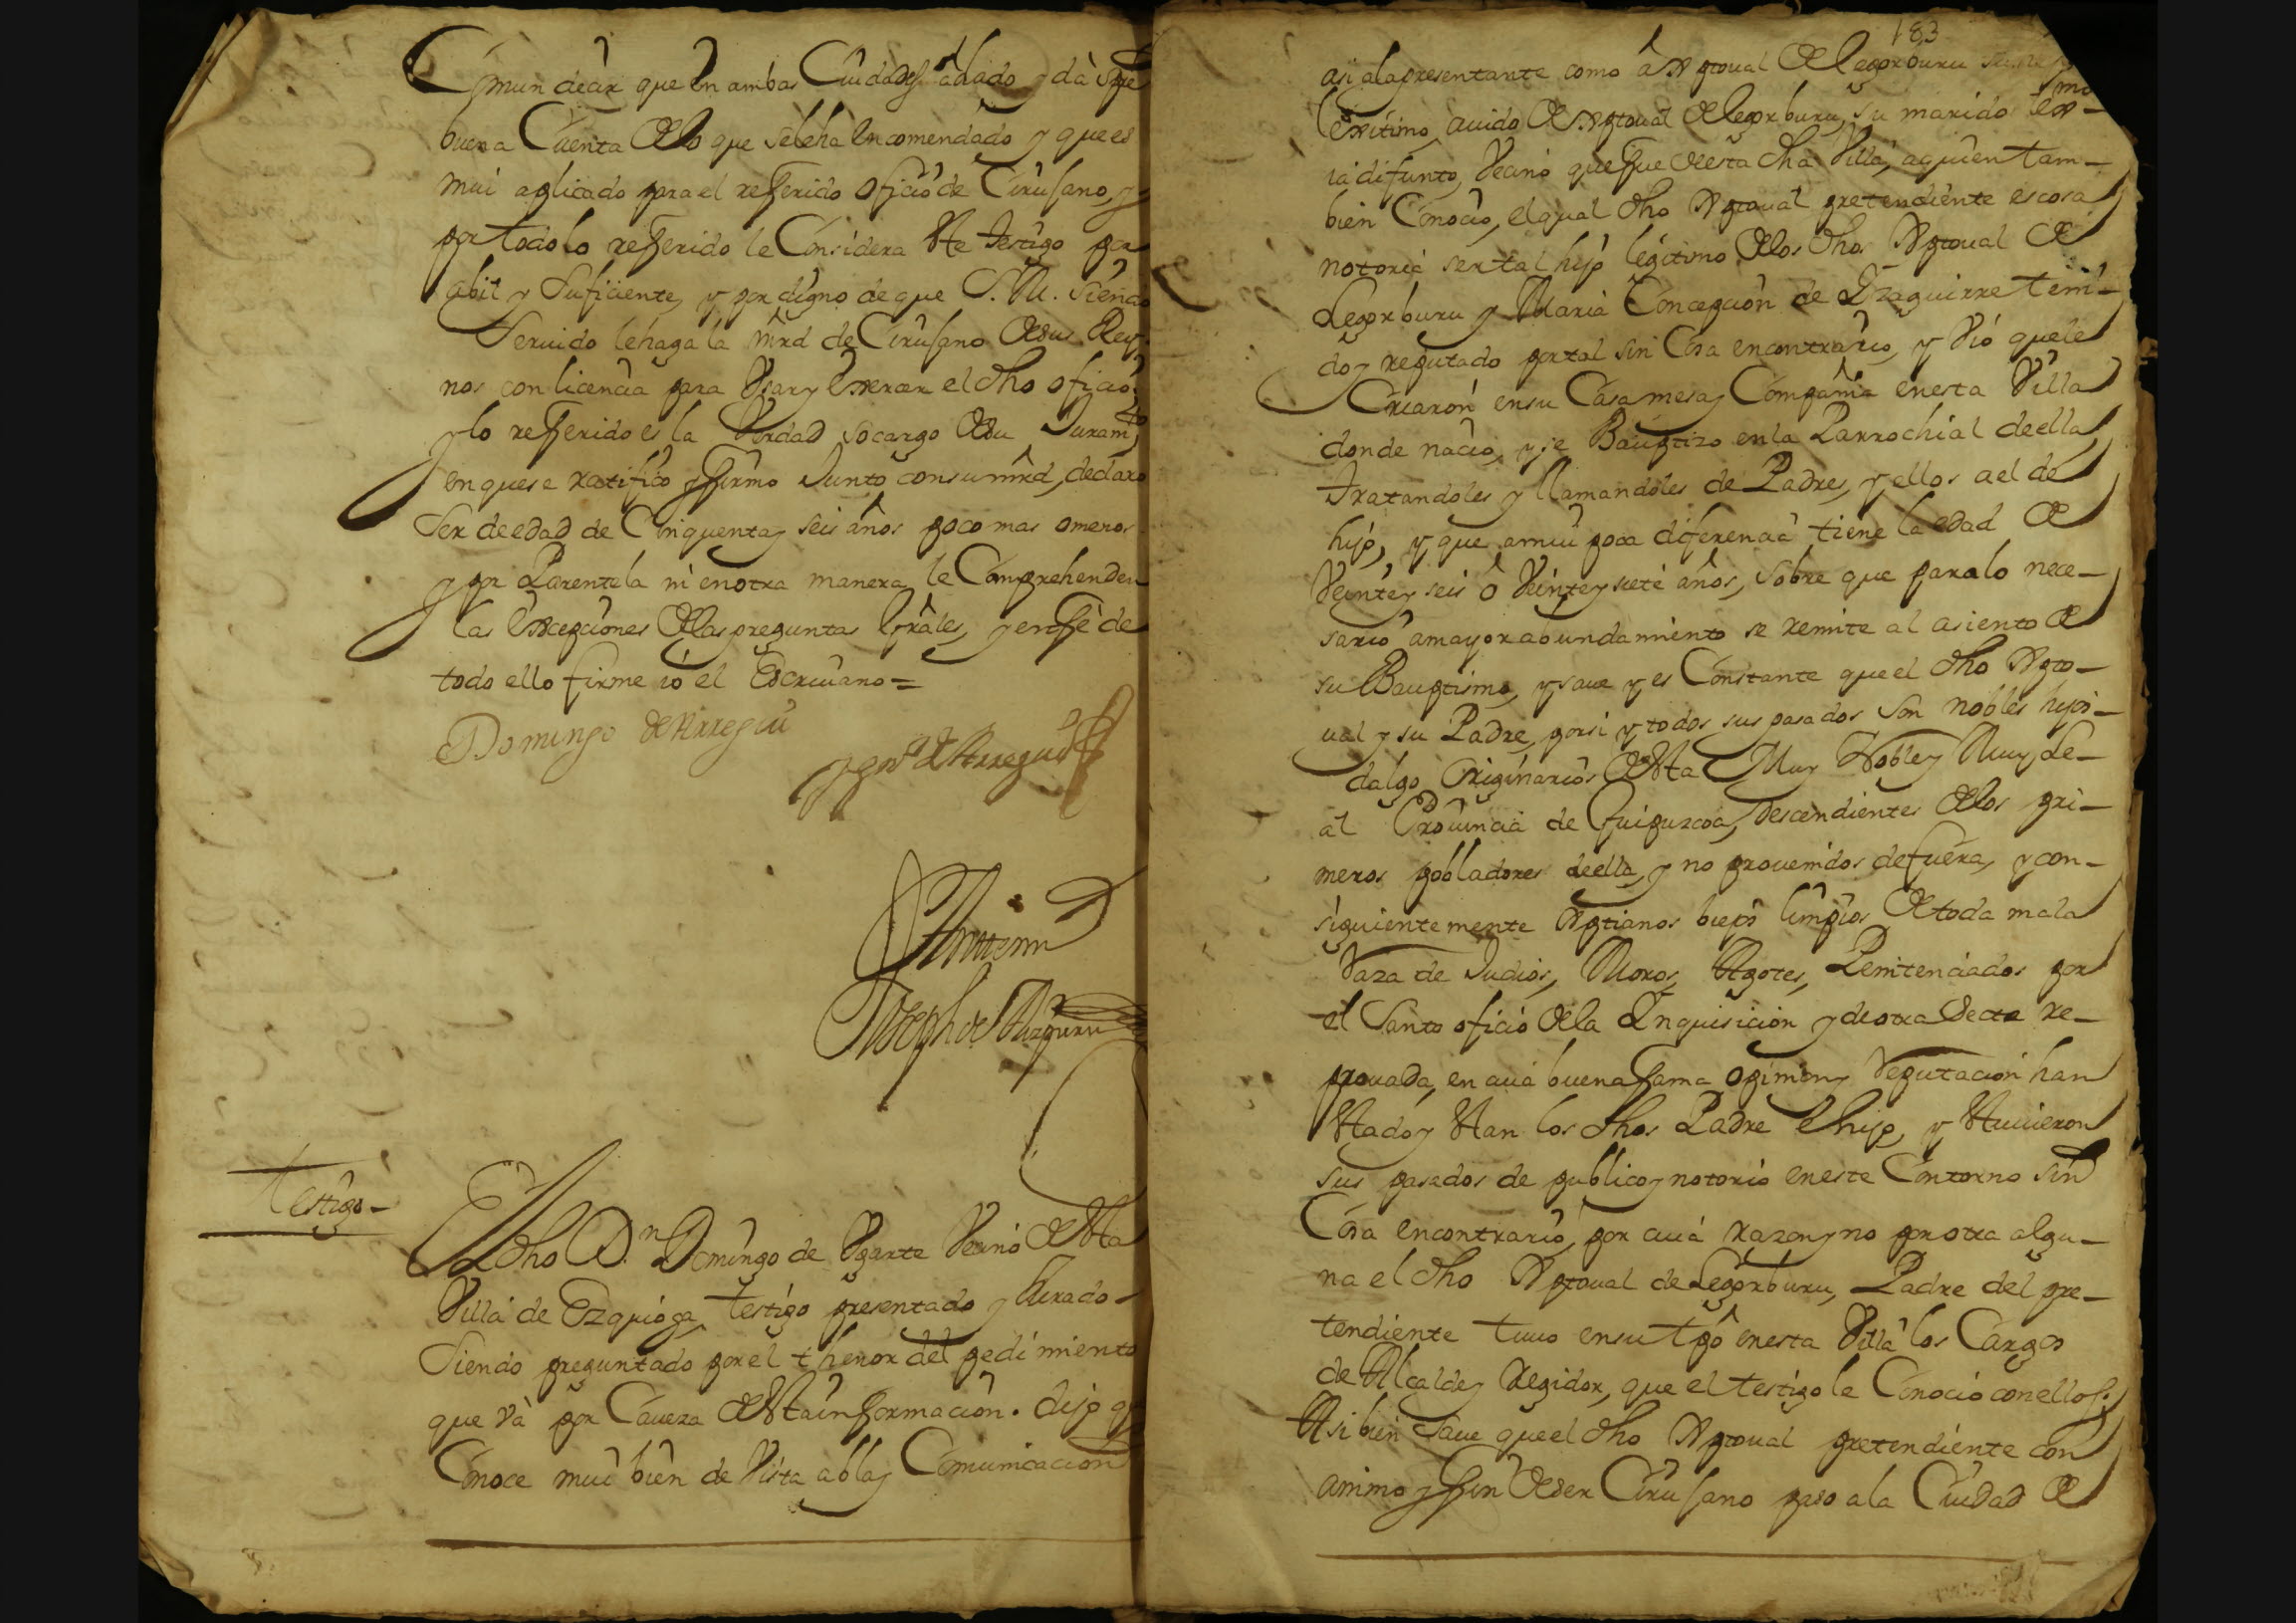 Comun decir que en ambas Ciudades a dado y dà sre
buena Cuenta de lo que se le ha encomendado y que es
mui aplicado para el referido oficio de Cirujano, y
por todo lo referido le Considera este testigo por
abil y Suficiente, y por digno de que S. M. siendo
Seruido le haga la mrd de Cirujano de sus Rey-
nos con licencia para Vsar y Exercer el dho oficio,
y lo referido es la Verdad so cargo de su Juramto
en que se ratificò y firmò Junto con su mrd, declarò
Ser de edad de Cinquenta y seis años poco mas o menos
y por Parentela ni en otra manera le Comprehenden
las Excepciones de las preguntas Grâles, y en fee de
todo ello firme io el Escriuano =
Domingo de Arregui
Testigo -
El dho Dn. Domingo de Vgarte Vecino de esta
Villa de Ezquioga, testigo presentado y Jurado -
Siendo preguntado por el thenor del pedimiento
que và por Caueza de esta informacion. dijo q
Conoce mui bien de Vista abla y Comunicacion
183
asi a la presentante como â Xptoual de Legorburu su
lexitimo, auido de Xptoual de Legorburu, su marido lex-mo
ia difunto, Vecino que fue de esta dha Villa, a quien tam-
bien Conocio, el qual dho Xptoual pretendiente es cosa
notoria ser tal hijo legitimo de los dhos Xptoual de
Legorburu y Maria Concepcion de Yzaguirre teni-
do y reputado por tal sin Cosa en contrario, y Vió que le
Criaron en su Casa mesa y Compañia en esta Villa
donde nacio, y se Bauptizo en la Parrochial de ella,
Tratandoles y llamandoles de Padres, y ellos a el de
hijo, y que a mui poca diferencia tiene la edad de
Veinte y seis ô Veinte y siete años, sobre que para lo nece-
sario a mayor abundamiento se remite al asiento de
su Bauptismo, y saue y es Constante que el dho Xpto-
ual y su Padre, por si y todos sus pasados son nobles hijos-
dalgo Originarios de esta Muy Noble y Muy Le-
al Prouincia de Guipuzcoa, Descendientes de los pri-
meros pobladores de ella, y no prouenidos de fuera, y con-
siguientemente Xptianos biejos limpios de toda mala
Raza de Judios, Moros, Agotes, Penitenciados por
el Santo oficio de la Ynquisicion y de otra Secta re-
prouada, en cuia buena fama opinion y Reputacion han
estado y estan los dhos Padre e hijo, y estuuieron
sus pasados de publico y notorio en este Contorno sin
Cosa en contrario, por cuia razon y no por otra algu-
na el dho Xptoual de Legorburu, Padre del pre-
tendiente tuuo en su tpô en esta Villa los Cargos
de Alcalde y Regidor, que el testigo le Conocio con ellos. y
Asi bien Saue que el dho Xptoual pretendiente con
animo y fin de ser Cirujano paso a la Ciudad de